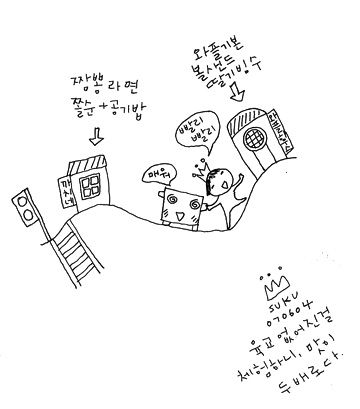 짬뽕라면
쫄순+공기밥
와플기본
볼샌드
딸기빙수
빨리
빨리
매워
까치네
SUKU
070604
육교 없어진걸
체험하니, 맛이
두배로다.